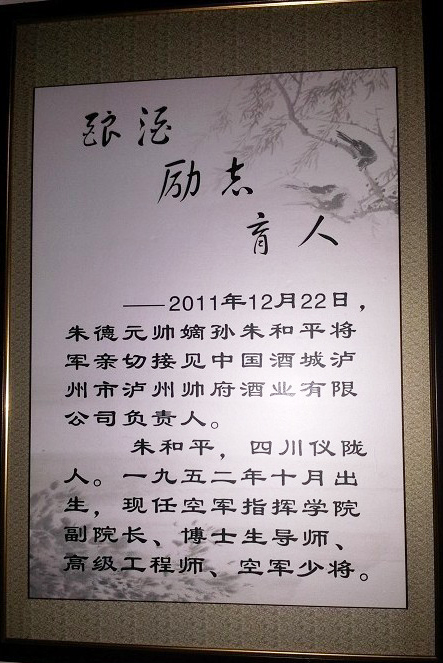 酿酒
励志
育人
——2011年12月22日，
朱德元帅嫡孙朱和平将
军亲切接见中国酒城泸
州市泸州帅府酒业有限
公司负责人。
朱和平，四川仪陇
人。一九五二年十月出
生，现任空军指挥学院
副院长、博士生导师、
高级工程师、空军少将。